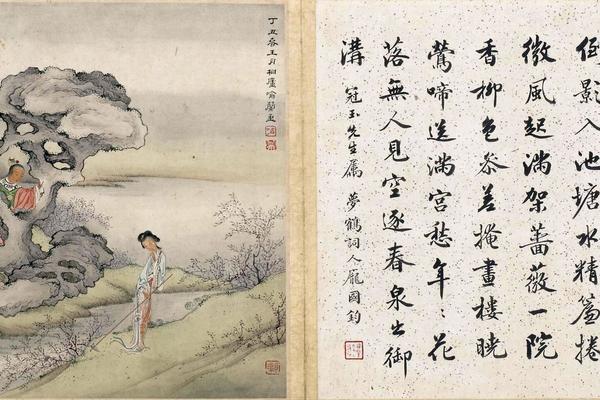 倒影入池塘水精簾捲
微風起滿架薔薇一院
香柳色參差掩畫樓曉
鶯啼送滿宮愁年〻花
落無人見空逐春泉出御
溝
冠玉先生屬 夢鶴詞人龐國鈞
丁丑春王月桐廬喻蘭畫